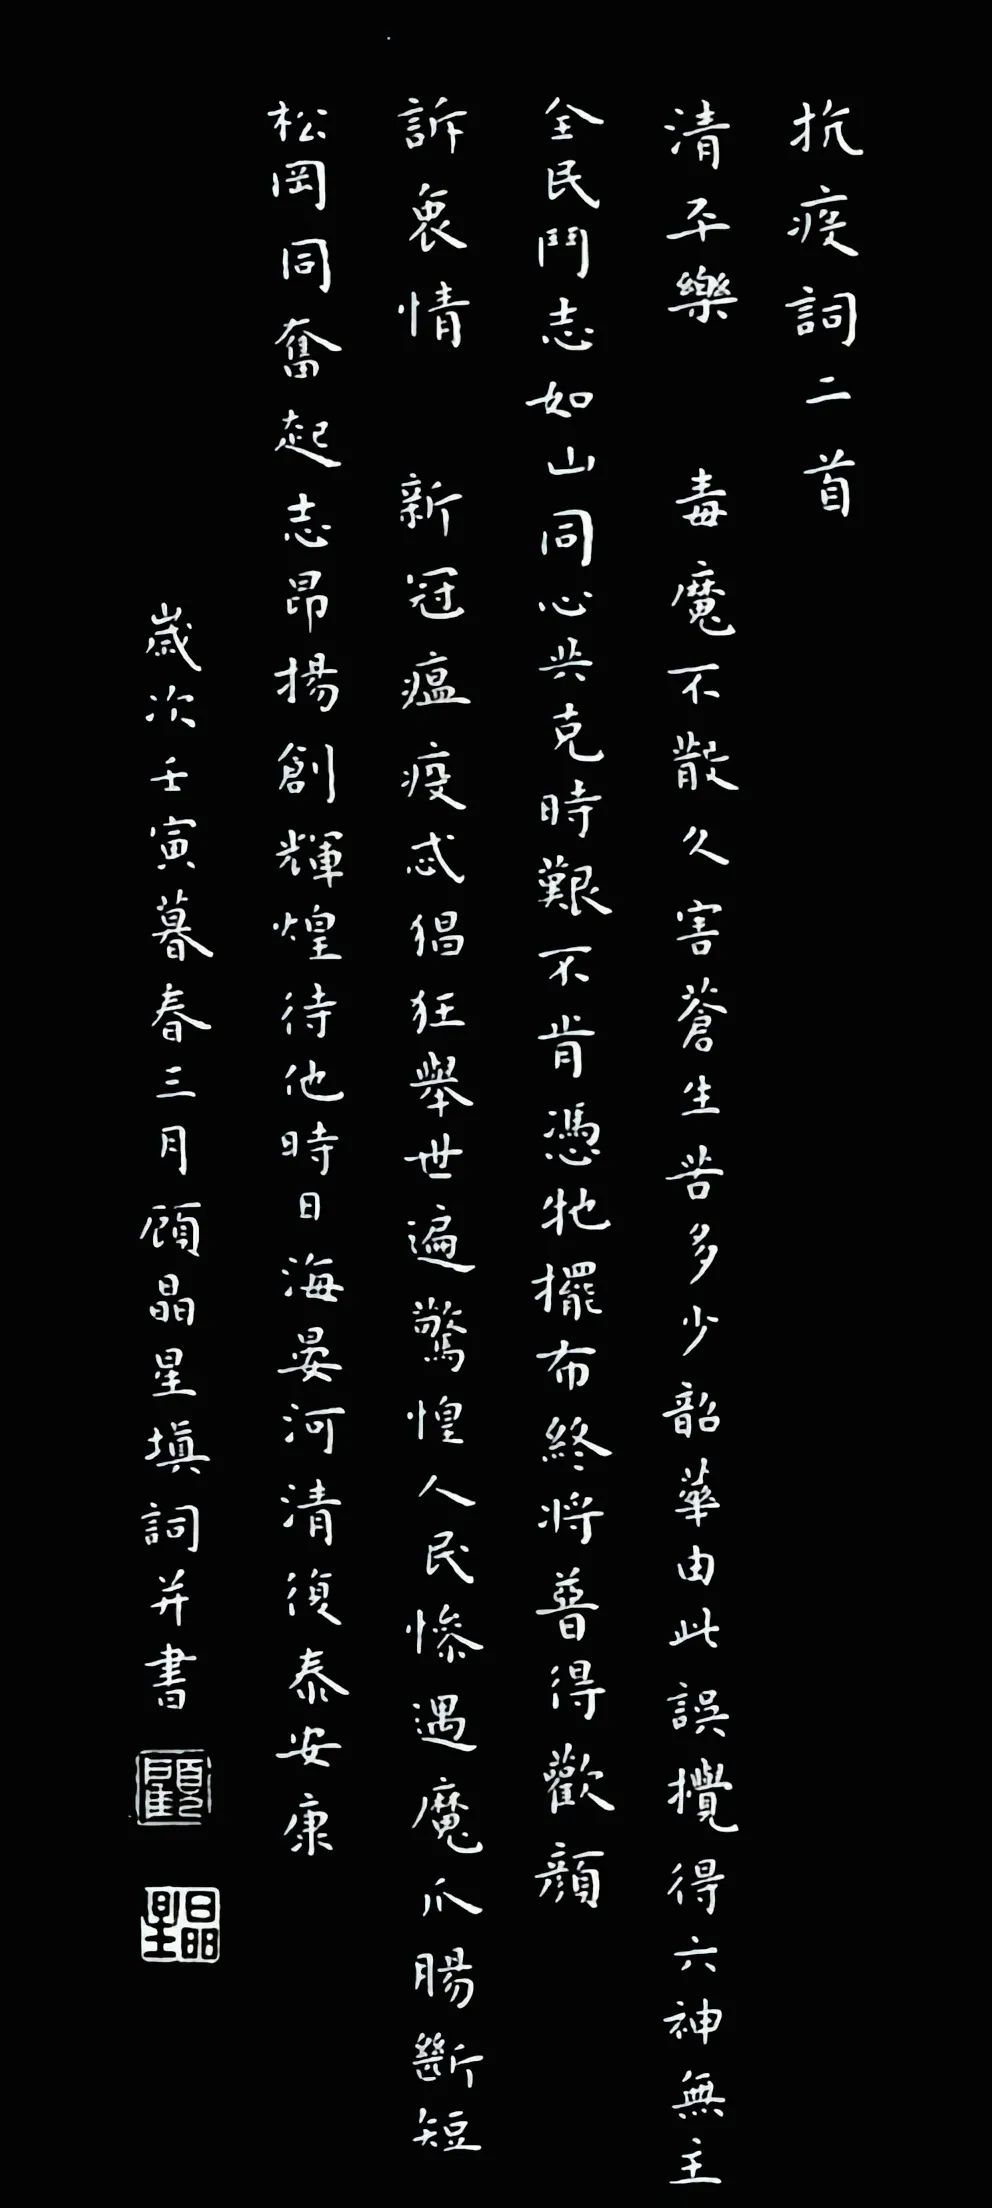 抗疫詞二首
清平樂 毒魔不散久害蒼生苦多少韶華由此誤攪得六神無主
全民鬥志如山同心共克時艱不肯憑牠擺布終將普得歡顏
訴衷情 新冠瘟疫忒猖狂舉世遍驚惶人民慘遇魔爪腸斷短
松岡同奮起志昂揚創輝煌待他時日海晏河清復泰安康
歲次壬寅暮春三月顧晶星填詞并書
顧
晶星